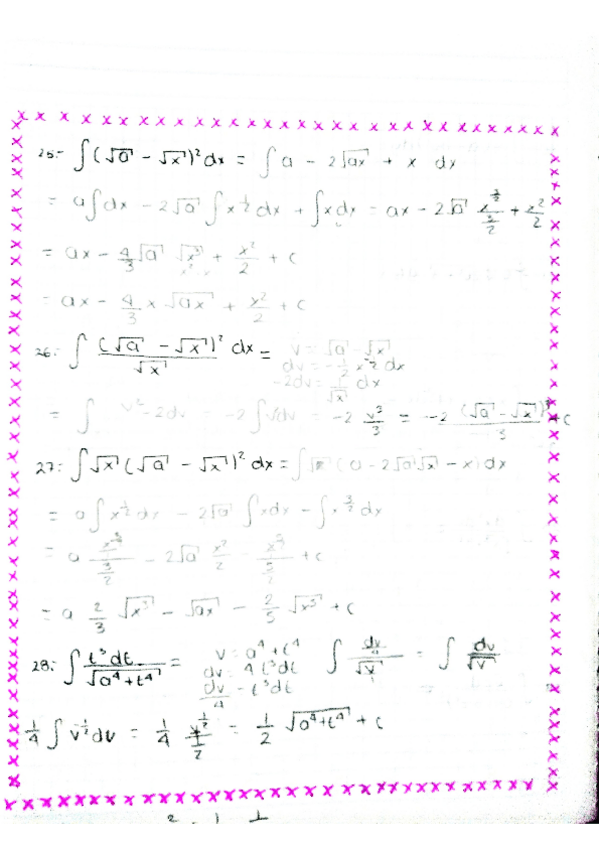 25.- ∫(√a - √x)² dx = ∫ a - 2√ax + x dx
= a∫dx - 2√a ∫x^½ dx + ∫xdx = ax - 2√a x^(3/2)/(3/2) + x²/2
= ax - 4/3 √a √x³ + x²/2 + c
= ax - 4/3 x √ax + x²/2 + c
26.- ∫ (√a -√x)² dx / √x = v = √a - √x
dv = -½ x^-½ dx
-2dv = 1/√x dx
= ∫ v² - 2dv = -2 ∫ v²dv = -2 v³/3 = -2 (√a - √x)³/3 + c
27.- ∫√x (√a - √x)² dx = ∫√x (a - 2√a√x - x) dx
= a∫x^½ dx - 2√a ∫xdx - ∫x^(3/2) dx
= a x^(3/2)/(3/2) - 2√a x²/2 - x^(5/2)/(5/2) + c
= a 2/3 √x³ - √ax - 2/5 √x⁵ + c
28.- ∫ t³dt / √a⁴+t⁴ = v = a⁴ + t⁴
dv = 4t³dt
dv/4 = t³dt
∫ (dv/4)/√v = ∫ dv/√v
¼ ∫ v^-½ dv = ¼ v^½/½ = ½ √a⁴+t⁴ + c